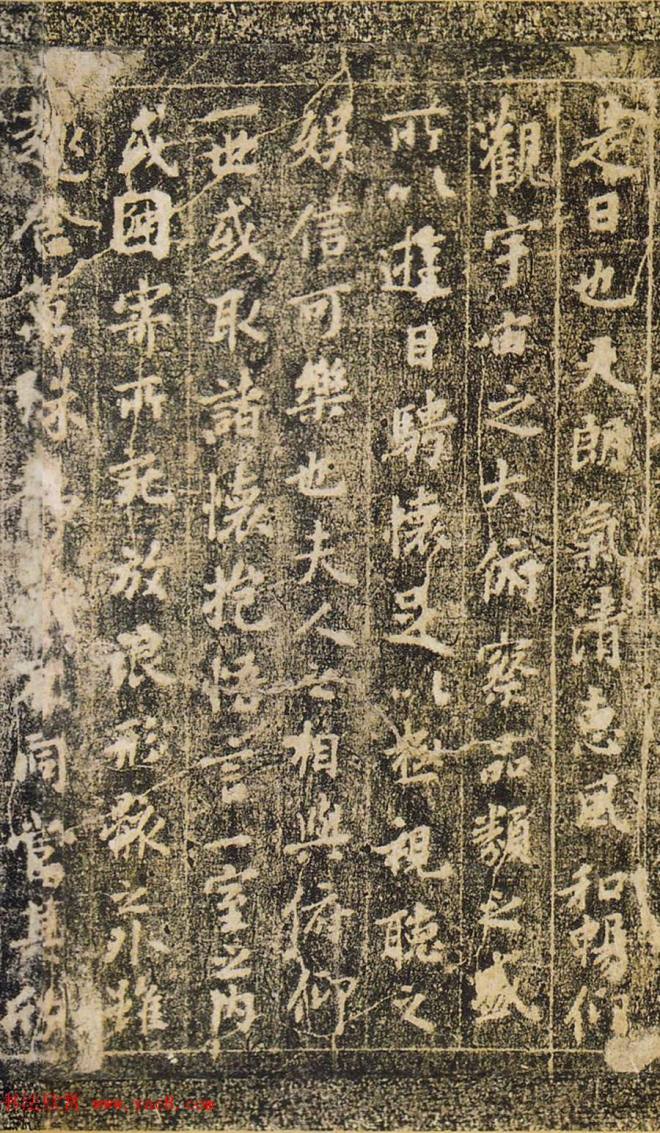 是日也天朗氣清惠風和暢仰
觀宇宙之大俯察品類之盛
所以遊目騁懷足以極視聽之
娛信可樂也夫人之相與俯仰
一世或取諸懷抱悟言一室之內
或因寄所託放浪形骸之外雖
趣舍萬殊不同當其欣
书法欣赏 www.yac8.com